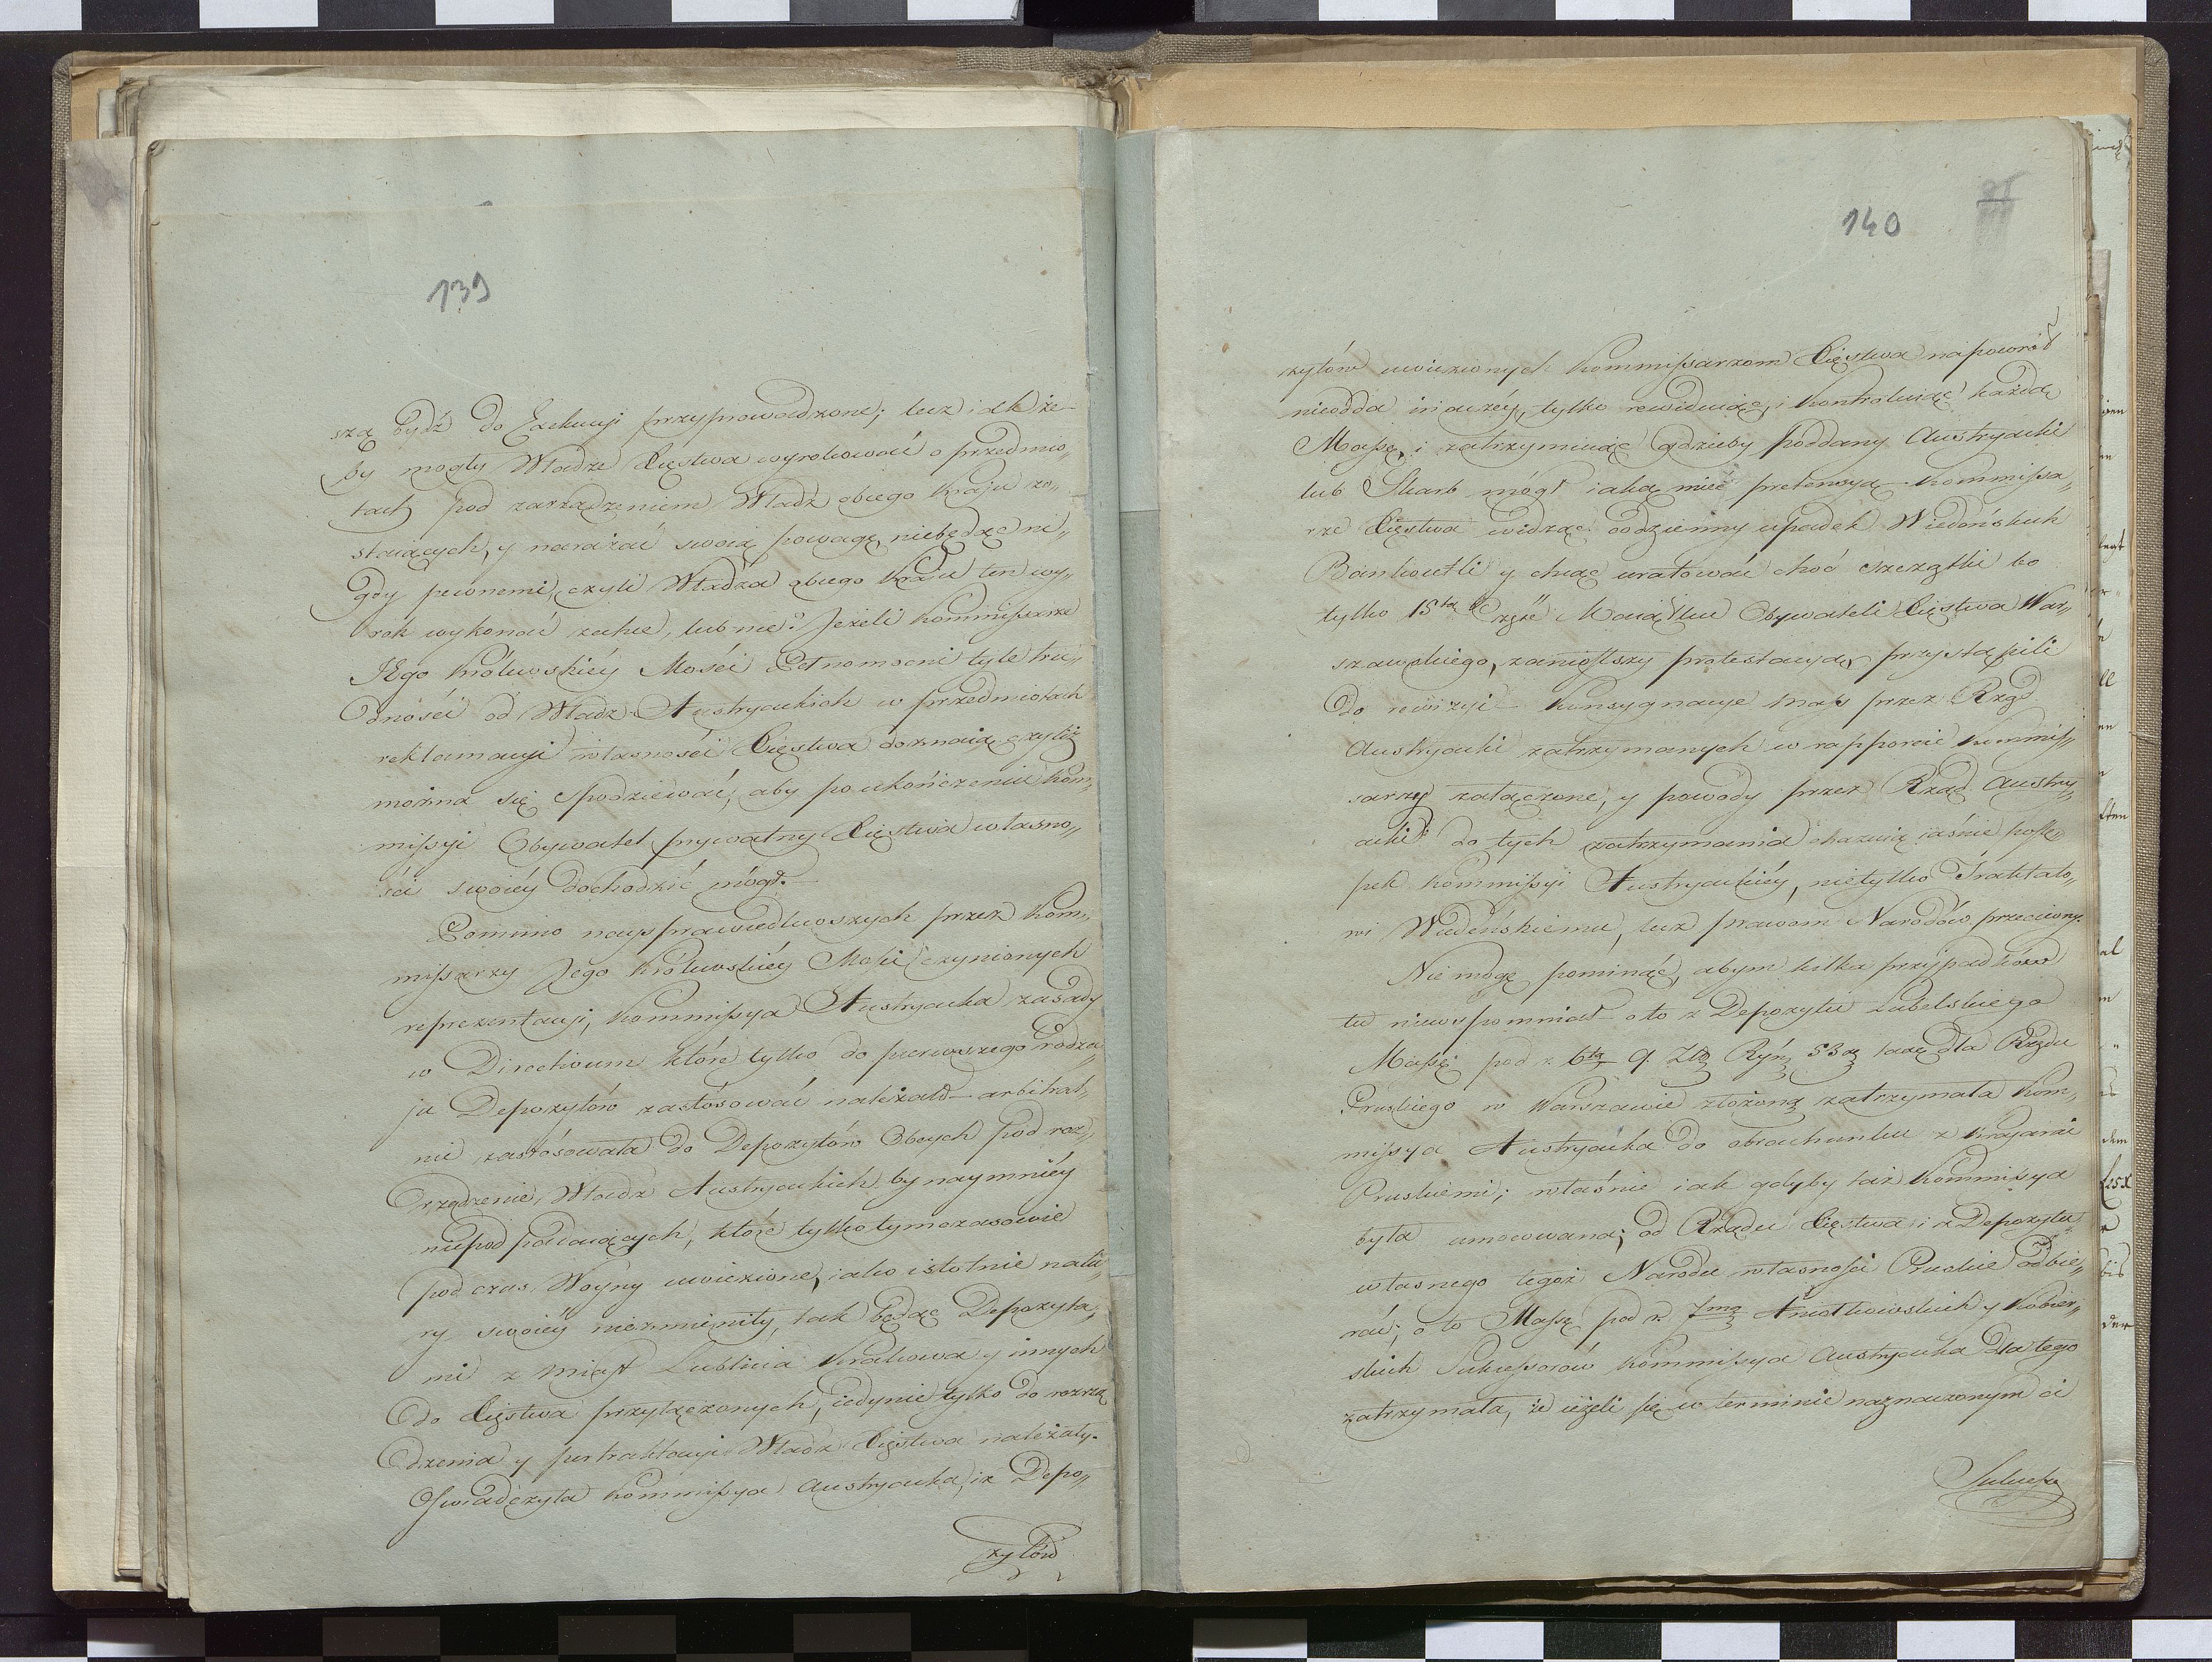 139
szą bydź do Exekucyi przyprowadzone; lecz iak że
by mogły Władze Xięstwa wyrokować o przedmio„
tach pod zarządzeniem Władz obcego kraju zo„
staiących, y narażać swoią powagę, niebędąc ni„
gdy pewnemi, czyli Władza obcego kraju ten wy„
rok wykonać zechce, lub nie? Jeżeli Kommissarze
JEgo Królewskiéy Mości Pełnomocni tyle tru„
dności od Władz Austryackich w przedmiotach
reklamacyi własności Xięstwa doznaią, czyliż
można się spodziewać, aby po ukończeniu Kom„
missyi Obywatel prywatny Xięstwa własno„
ści swoiéy dochodzić mógł.
Pomimo naysprawiedliwszych przez Kom„
missarzy Jego Królewskiéy Mości czynionych
reprezentacyi, Kommissya Austryacka zasady
w Directivum które tylko do pierwszego rodza„
ju Depozytów zastósować należało – arbitral„
nie zastósowała do Depozytów Obcych pod roz„
rządzenie Władz Austryackich by naymniéy
niepodpadaiących, które tylko tymczasowie
podczas Woyny uwiezione, iako istotnie natu„
ry swoiéy niezmieniły, tak będąc Depozyta„
mi z Miast Lublina Krakowa y innych
do Xięstwa przyłączonych, iedynie tylko do rozrzą
dzenia y pertraktacyi Władz Xięstwa należały.
Oświadczyła Kommissya Austryacka, iż Depo„
zytów
140
zytów uwiezionych Kommissarzom Xięstwa napowrót
nieodda inaczéy, tylko rewiduiąc, i kontroluiąc każdą
Massę, i zatrzymuiąc gdzieby poddany Austryacki
lub Skarb mógł iaką mieć pretensyą. Kommissa„
rze Xięstwa widząc codzienny upadek Wiedeńskich
Bankocetli y chcąc uratować choć szczątki bo
tylko 15tą część Maiątku Obywateli Xięstwa War„
szawskiego, zaniosłszy protestacyą, przystąpili
do rewizyi – Konsygnacye Mass przez Rząd
Austryacki zatrzymanych w rapporcie Kommis„
sarzy załączone, y powody przez Rząd Austry„
acki do tych zatrzymania okazuią iaśnie postę„
pek Kommissyi Austryackiéy, nietylko Traktato„
wi Wiedeńskiemu, lecz prawom Narodów przeciwny.
Nie mogę pominąć, abym kilka przypadków
tu niewspomniał – oto z Depozytu Lubelskiego
Massę pod z 6tą 9. Złł Ryń 53 iako dla Rządu
Pruskiego w Warszawie złożoną zatrzymała Kom„
missya Austryacka do obrachunku z
Pruskiemi; właśnie iak gdyby taż Kommissya
była umocowana; od Rządu Xięstwa i z Depozytu
własnego tegoż Narodu własności Pruskie odbie„
rać; o to Massę pod z 7mą y
skich Sukcessorów Kommissya Austryacka dla tego
zatrzymała, że ieżeli się w terminie naznaczonym ci